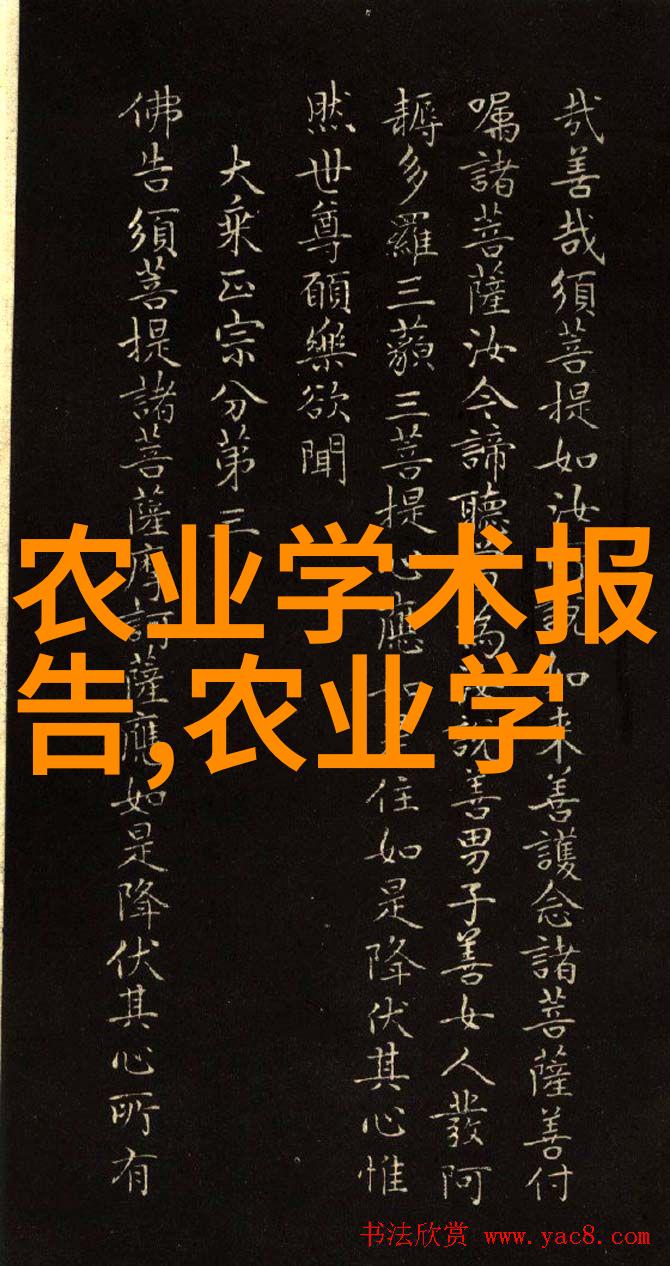 哉善哉須菩提如汝所說如來善護念諸菩薩善付
囑諸菩薩汝今諦聽當為汝說善男子善女人發阿
耨多羅三藐三菩提心應如是住如是降伏其心惟
然世尊願樂欲聞
大乘正宗分第三
佛告須菩提諸菩薩摩訶薩應如是降伏其心所有
农业学术报
告,农业学
书法欣赏 www.yac8.com